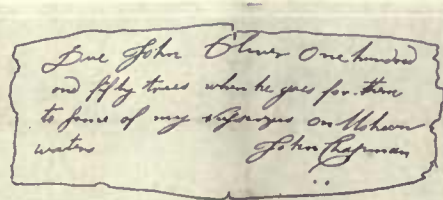 Due John Oliver One hundred
and fifty trees when he goes for them
to some of my nurseryes on Mohecan
waters
John Chapman